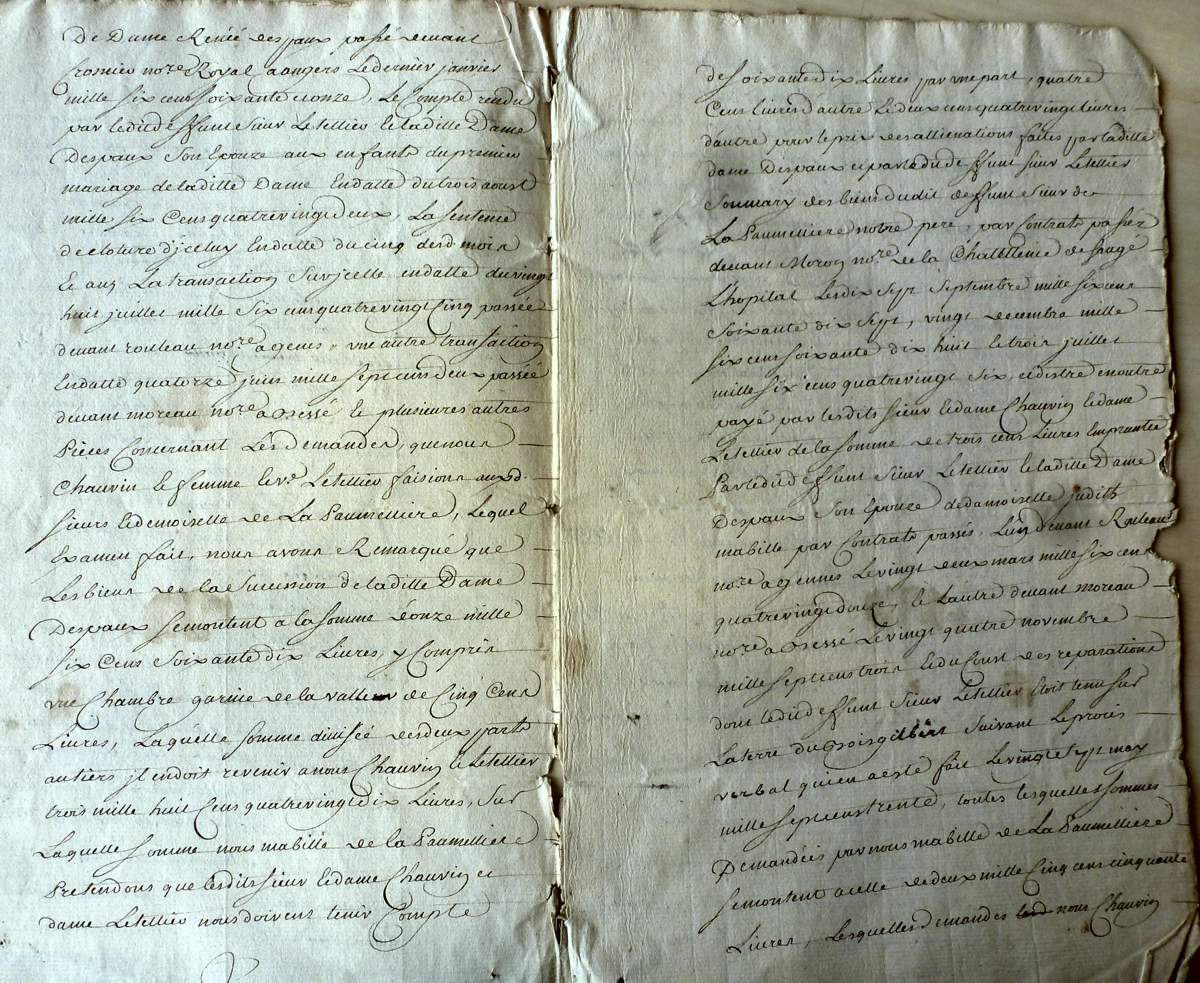 De Dame Renée Despaux passé devant
Crosnier no.re Royal a angers Le dernier janvier
mille six cens soixante et onze, Le Compte rendu
par ledit deffunt Sieur Letellier et laditte Dame
Despaux Son Epouze aux enfants du premier
mariage de laditte Dame En datte du trois aoust
mille six Cens quatre vingt deux, La sentence
de cloture d'jceluy En datte du cinq desd. mois
Et an, La transaction Sur jcelle en datte du vingt
huit juillet mille Six cens quatre vingt Cinq passée
devant rouleau no.re a genes, vne autre transaction
En datte quatorze juin mille sept cens deux passée
devant moreau no.re a Dessé Et plusieures autres
Pièces Concernant Les demandes, que nous
Chauvin Et femme Et v.e Letellier faisions auxd.
Sieurs Et demoiselle de La Paumelliere, Lequel
Examen fait, nous avons Remarqué que
Les biens de la Sucession de laditte Dame
Despaux Se montent a la somme d'onze mille
Six Cens Soixante dix Livres, y Compris
vne Chambre garnie de la valleur de Cinq Cens
Livres, Laquelle somme divisée des deux parts
au tiers jl en doit revenir a nous Chauvin Et Letellier
trois mille huit Cens quatre vingt dix Livres, Sur
Laquelle somme nous mabille de la Paumelliere
Pretendons que lesdits sieur Et dame Chauvin et
dame Letellier nous doivent tenir Compte
de Soixante dix Livres par vne part, quatre
Cens livres d'autre Et deux cens quatre vingt livres
d'autre pour le prix des allienations faites par laditte
dame Despaux et par ledit deffunt sieur Letellier
Son mary des biens dudit deffunt Sieur de
La Paumelliere notre pere, par Contrats passés
devant Moron no.re de la Chatellenie de Saugé
L'hopital Les dix Sept Septembre mille six cens
Soixante dix Sept, vingt decembre mille
six cens soixante dix huit Et trois juillet
mille six cens quatre vingt six, et d'estre en outre
payé par lesdits sieur Et dame Chauvin Et dame
Letellier de la somme de trois cens Livres Empruntée
Par ledit deffunt Sieur Letellier Et laditte Dame
Despaux Son Epouze de damoiselle judith
mabille par Contrats passés, L'un devant Rouleau
no.re a gennes Le vingt deux mars mille six cens
quatre vingt douze, Et L'autre devant moreau
no.re a Dessé Le vingt quatre novembre
mille sept cens trois Et du Coust des reparations
dont ledit deffunt Sieur Letellier Etoit tenu sur
La terre du Boisgilbert Suivant Le procès
verbal qui en a esté fait Le vingt et sept may
mille sept cens trente, toutes lesquelles sommes
Demandées par nous mabille de La Paumelliere
Se montent a celle de deux mille Cinq cens cinquante
Livres, Lesquelles demandes nous Chauvin